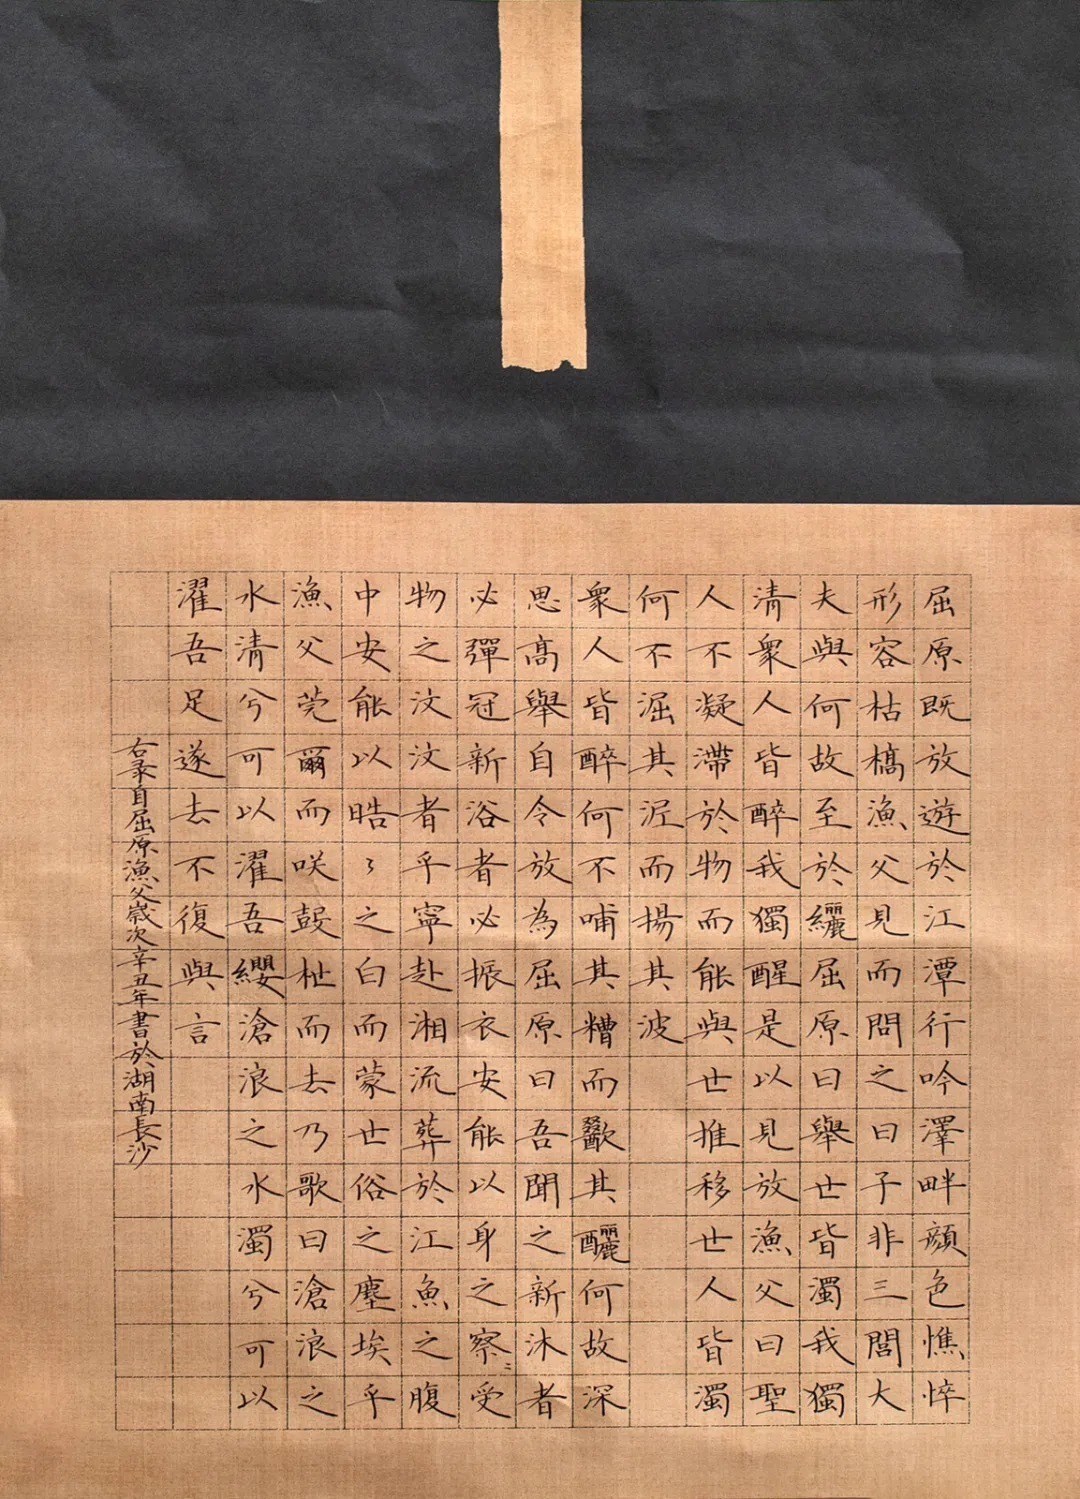 屈原既放遊於江潭行吟澤畔顔色憔悴
形容枯槁漁父見而問之曰子非三閭大
夫與何故至於纚屈原曰舉世皆濁我獨
清衆人皆醉我獨醒是以見放漁父曰聖
人不凝滯於物而能與世推移世人皆濁
何不淈其泥而揚其波
衆人皆醉何不哺其糟而歠其釃何故深
思高舉自令放為屈原曰吾聞之新沐者
必彈冠新浴者必振衣安能以身之察〻受
物之汶汶者乎寧赴湘流葬於江魚之腹
中安能以晧〻之白而蒙世俗之塵埃乎
漁父莞爾而咲鼓枻而去乃歌曰滄浪之
水清兮可以濯吾纓滄浪之水濁兮可以
濯吾足遂去不復與言
右录自屈原漁父歲次辛丑年書於湖南長沙